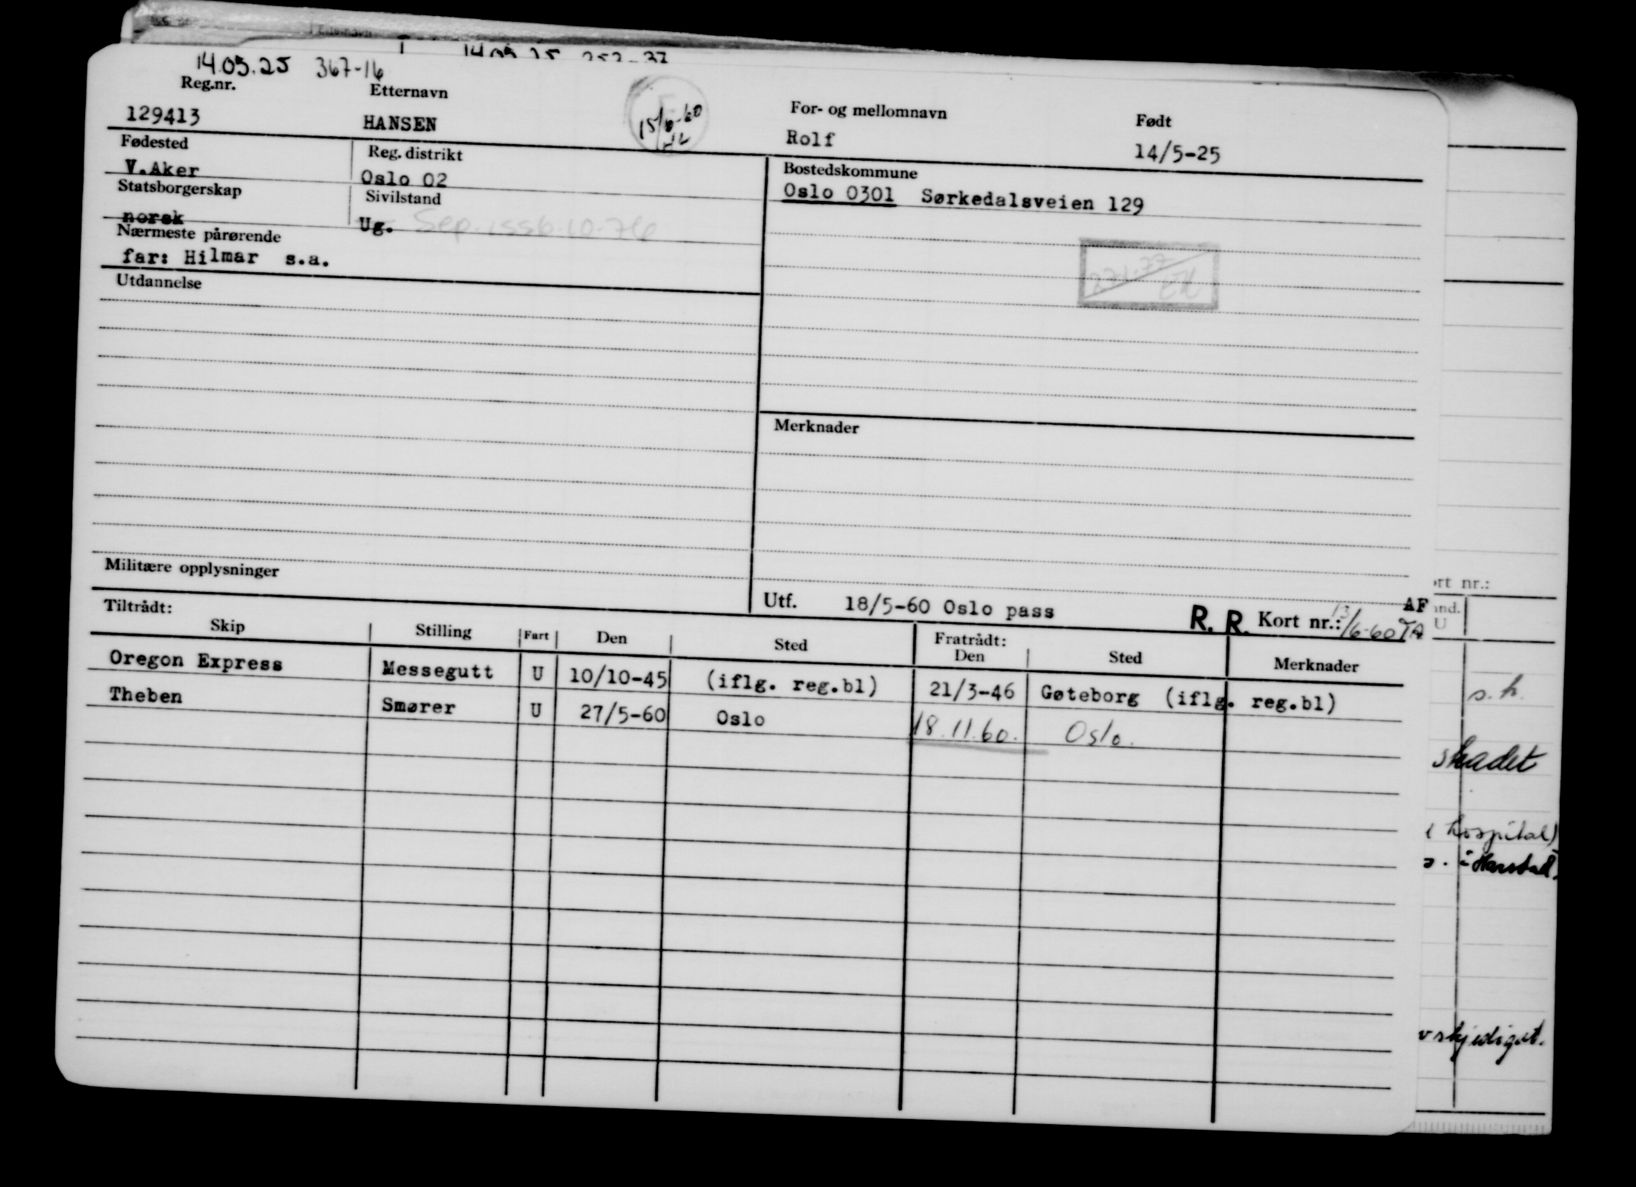 14.05.25 367-16
Reg.nr. Etternavn For- og mellomnavn Født
129413 HANSEN Rolf 14/5-25
Fødested Reg. distrikt Bostedskommune
V.Aker Oslo 02 Oslo 0301 Sørkedalsveien 129
Statsborgerskap Sivilstand
norsk Ug.
Nærmeste pårørende
far: Hilmar s.a.
Utdannelse
Merknader
Militære opplysninger
Utf. 18/5-60 Oslo pass R. R. Kort nr.: AF
Tiltrådt: Fratrådt:
Skip Stilling Fart Den Sted Den Sted Merknader
Oregon Express Messegutt U 10/10-45 (iflg. reg.bl) 21/3-46 Gøteborg (iflg. reg.bl)
Theben Smører U 27/5-60 Oslo 18.11.60. Oslo.
nr.:
s.h.
skadet
hospital)
i Harstad.